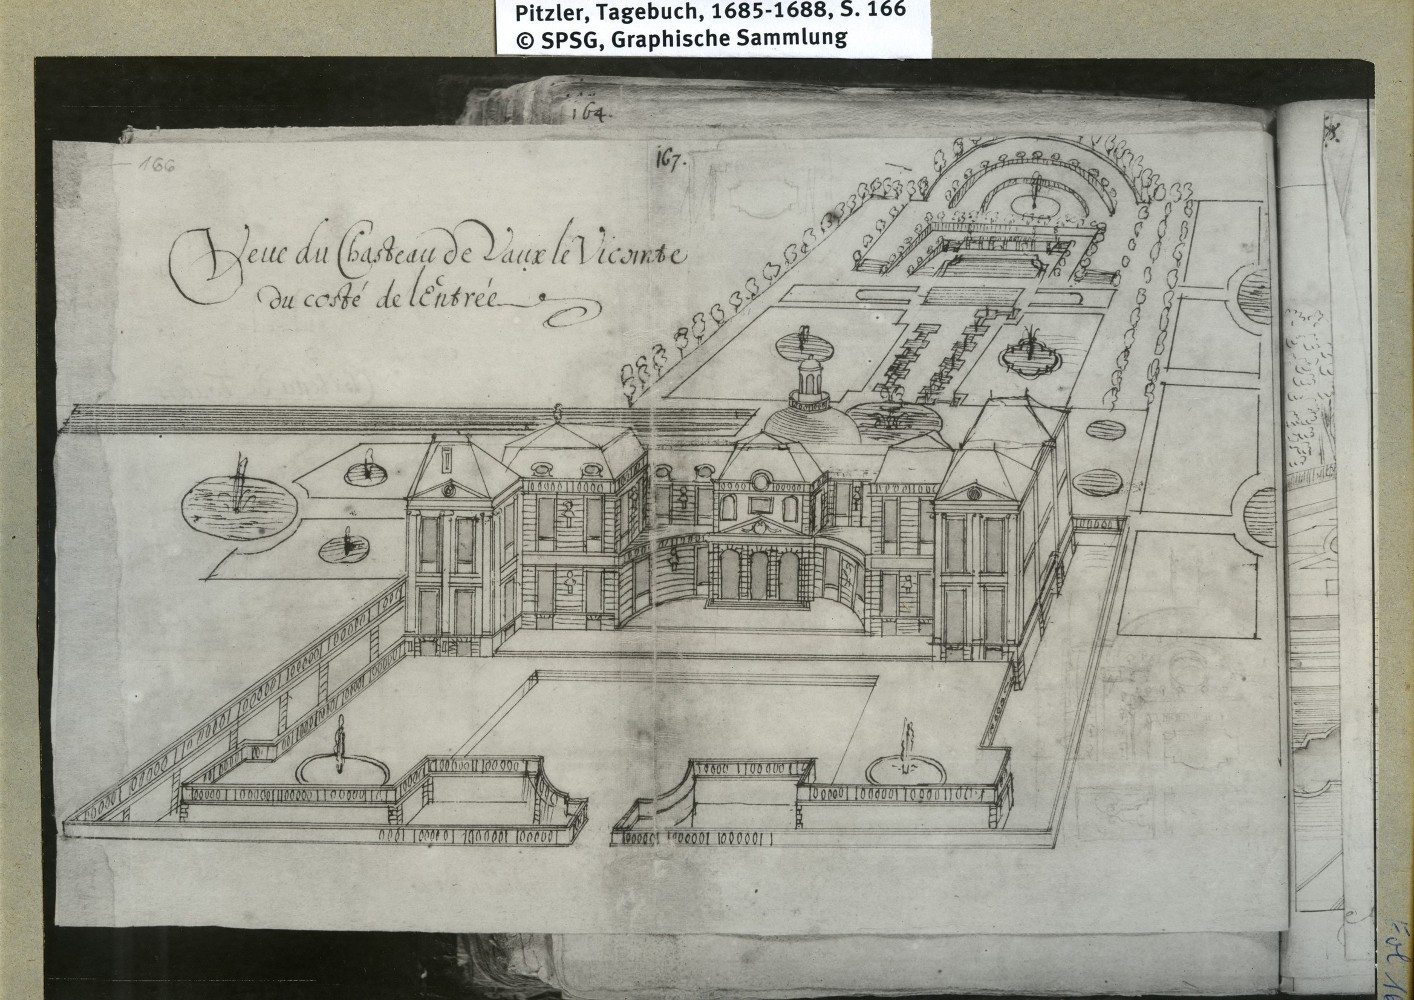 Pitzler, Tagebuch, 1685-1688, S. 166
© SPSG, Graphische Sammlung
164.
166
167.
Veue du Chasteau de Vaux le Vicomte
du costé de lEntrée